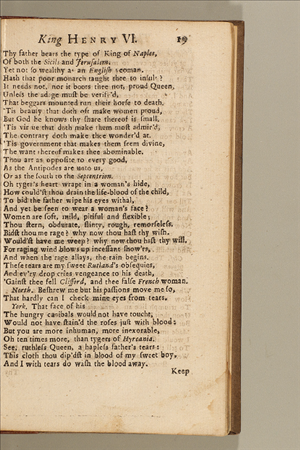 King HENRY VI. 19
Thy father bears the type of King of Naples,
Of both the Sicils and Jerusalem,
Yet not so wealthy as an English yeoman.
Hath that poor monarch taught thee to insult?
It needs not, nor it boots thee not, proud Queen,
Unless the adage must be verify'd,
That beggars mounted run their horse to death.
'Tis beauty that doth oft make women proud,
But God he knows thy share thereof is small.
'Tis virtue that doth make them most admir'd,
The contrary doth make thee wonder'd at.
'Tis government that makes them seem divine,
The want thereof makes thee abominable.
Thou art as opposite to every good,
As the Antipodes are unto us,
Or as the south to the Septentrion.
Oh tygers heart wrapt in a woman's hide,
How could'st thou drain the life-blood of the child,
To bid the father wipe his eyes withal,
And yet be seen to wear a woman's face?
Women are soft, mild, pitiful and flexible;
Thou stern, obdurate, flinty, rough, remorseless.
Bidst thou me rage? why now thou hast thy wish.
Would'st have me weep? why now thou hast thy will.
For raging wind blows up incessant show'rs,
And when the rage allays, the rain begins.
These tears are my sweet Rutland's obsequies,
And ev'ry drop cries vengeance to his death,
'Gainst thee fell Clifford, and thee false French woman.
North. Beshrew me but his passions move me so,
That hardly can I check mine eyes from tears.
York. That face of his
The hungry canibals would not have touch'd,
Would not have stain'd the roses just with blood:
But you are more inhuman, more inexorable,
Oh ten times more, than tygers of Hyrcania.
See, ruthless Queen, a hapless father's tears:
This cloth thou dip'dst in blood of my sweet boy,
And I with tears do wash the blood away.
Keep